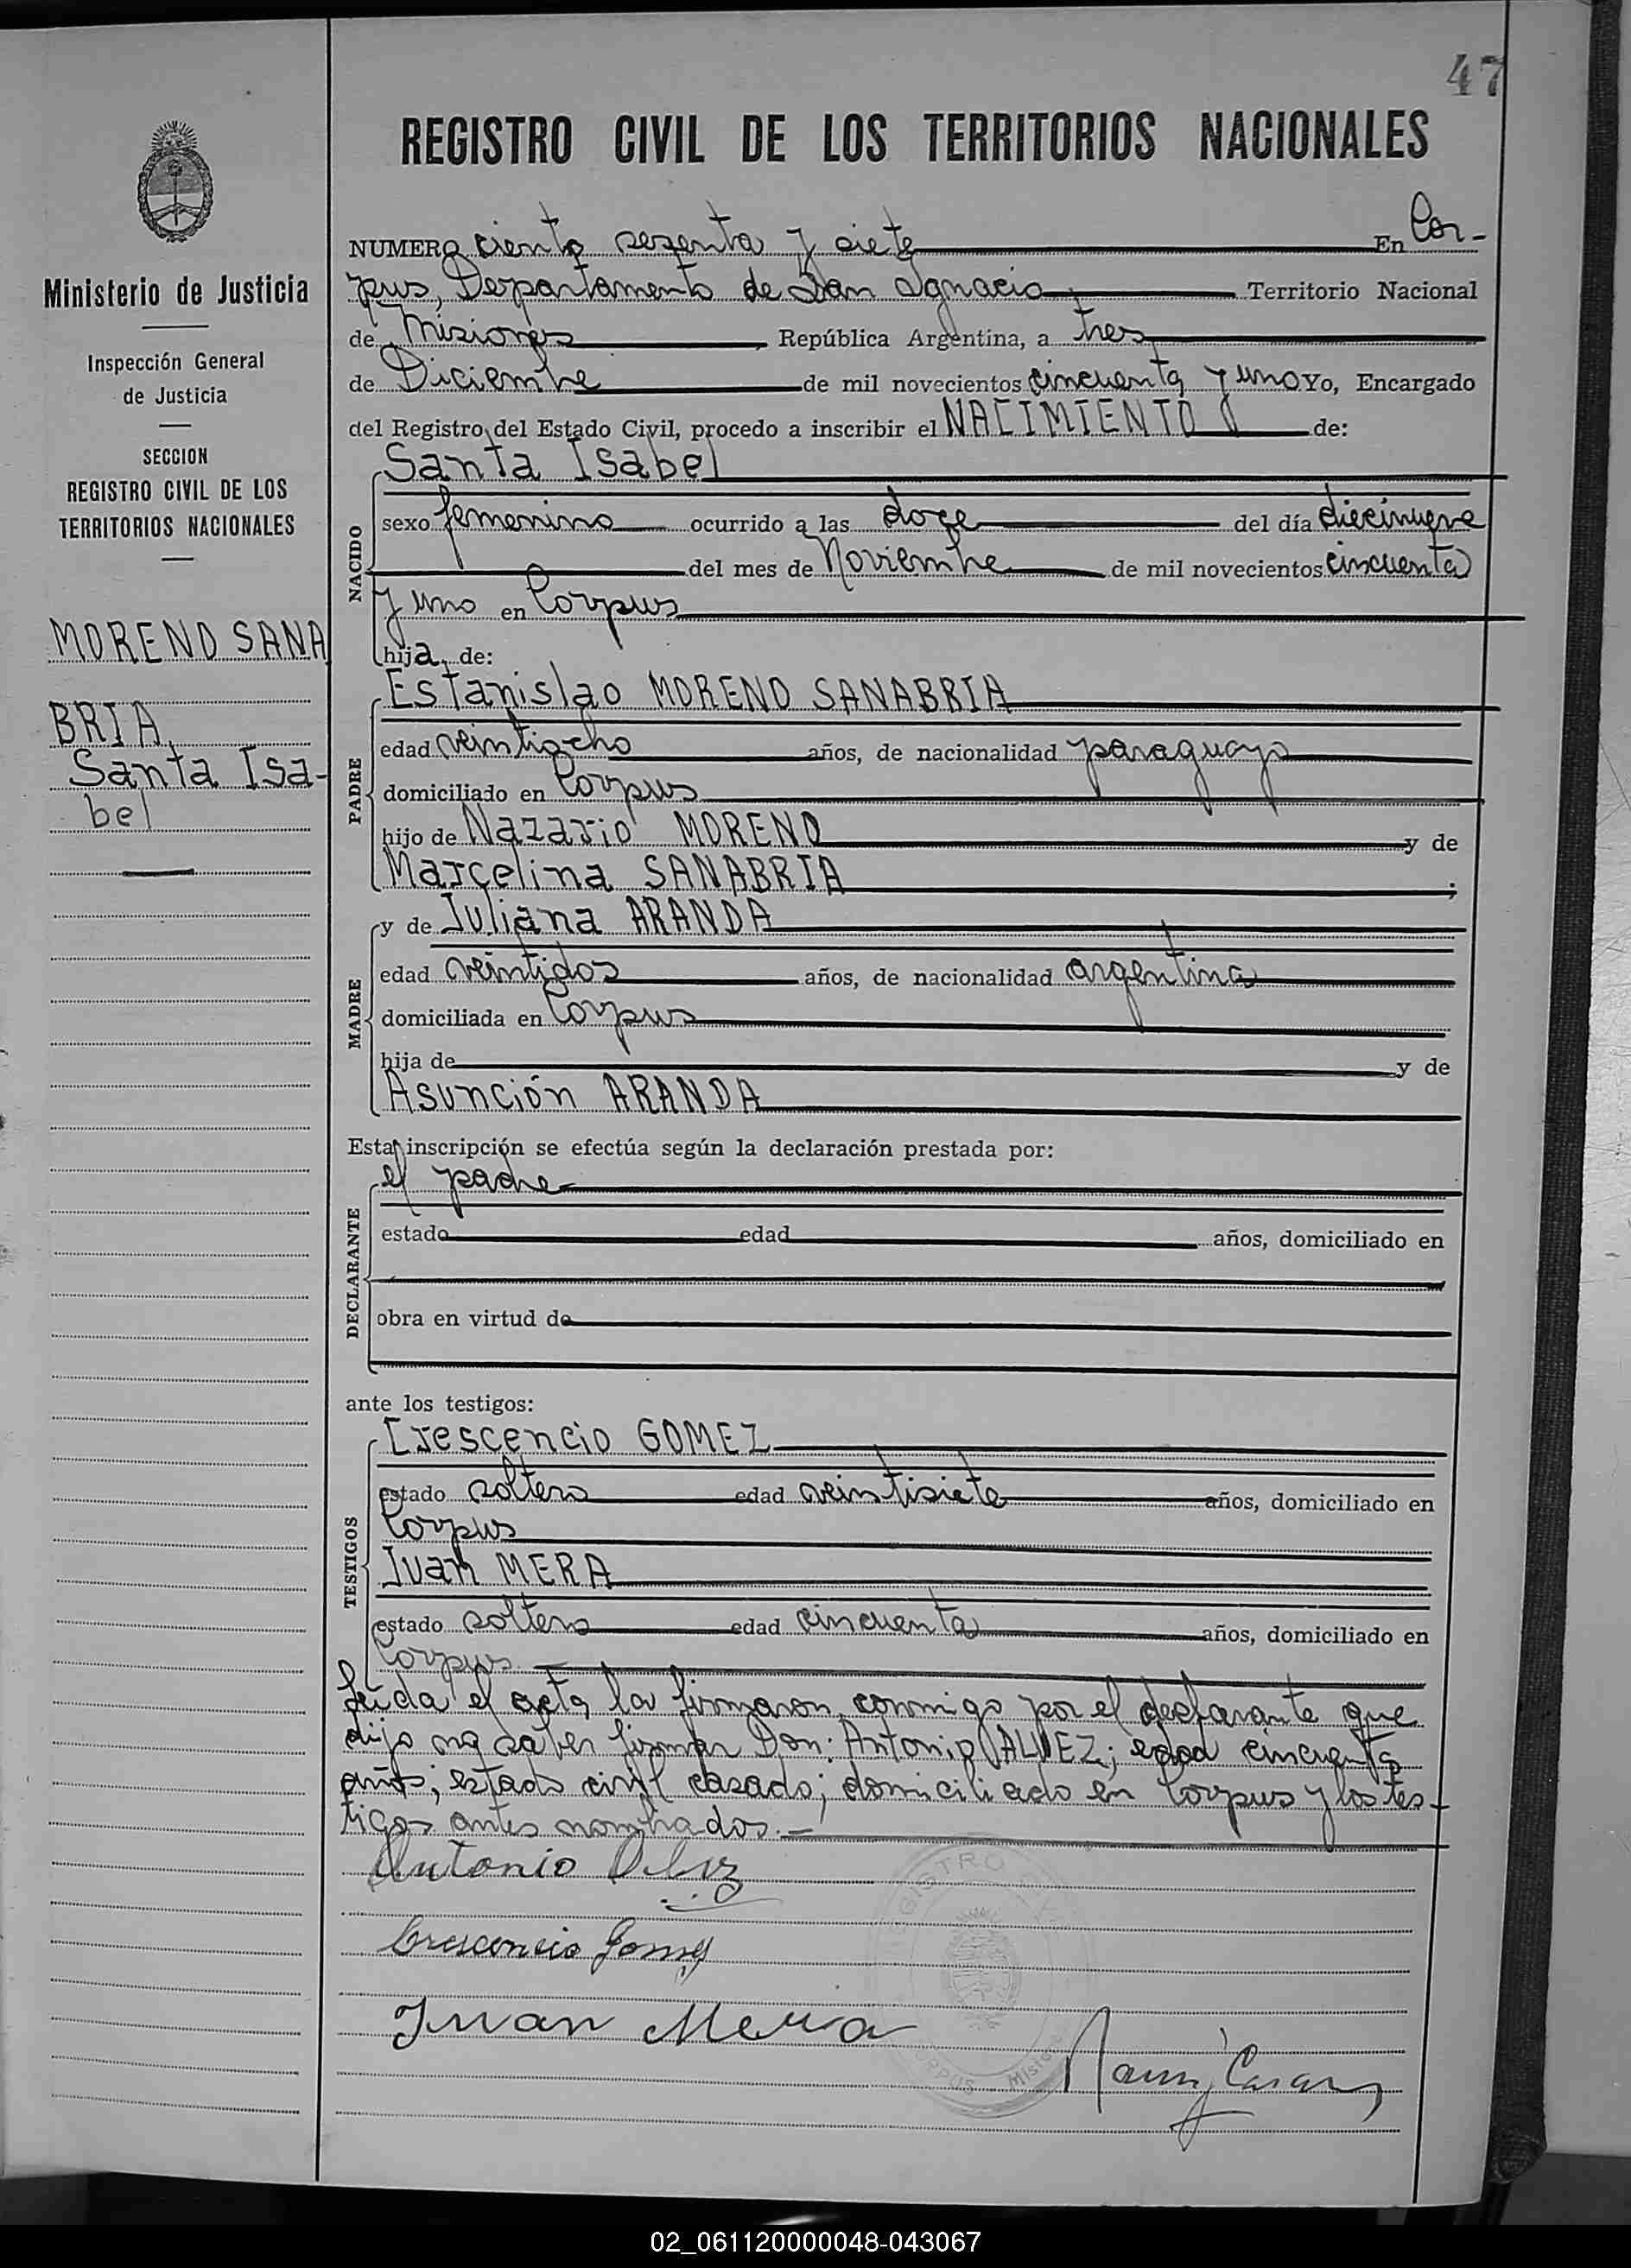 47
REGISTRO CIVIL DE LOS TERRITORIOS NACIONALES
Ministerio de Justicia
Inspección General
de Justicia
SECCION
REGISTRO CIVIL DE LOS
TERRITORIOS NACIONALES
MORENO SANA
BRIA
Santa Isa-
bel
NUMERO ciento sesenta y siete En Cor-
pus, Departamento de San Ignacio, Territorio Nacional
de Misiones, República Argentina, a tres
de Diciembre de mil novecientos cincuenta y uno Yo, Encargado
del Registro del Estado Civil, procedo a inscribir el NACIMIENTO de:
Santa Isabel
NACIDO
sexo femenino ocurrido a las doce del día diecinueve
del mes de Noviembre de mil novecientos cincuenta
y uno en Corpus
hija de:
Estanislao MORENO SANABRIA
PADRE
edad veintiocho años, de nacionalidad paraguayo
domiciliado en Corpus
hijo de Nazario MORENO y de
Marcelina SANABRIA ;
y de Juliana ARANDA
MADRE
edad veintidos años, de nacionalidad argentina
domiciliada en Corpus
hija de y de
Asunción ARANDA
Esta inscripción se efectúa según la declaración prestada por:
el padre
DECLARANTE
estado edad años, domiciliado en
obra en virtud de
ante los testigos:
Crescencio GOMEZ
TESTIGOS
estado soltero edad veintisiete años, domiciliado en
Corpus
Juan MERA
estado soltero edad cincuenta años, domiciliado en
Corpus.
Leída el acta, la firmaron conmigo por el declarante que
dijo no saber firmar Don: Antonio ALVEZ; edad cincuenta
años; estado civil casado; domiciliado en Corpus y los tes-
tigos antes nombrados.-
Antonio
Crescencio Gomez
Juan Mera
REGISTRO
CORPUS MISIONES
02_061120000048-043067